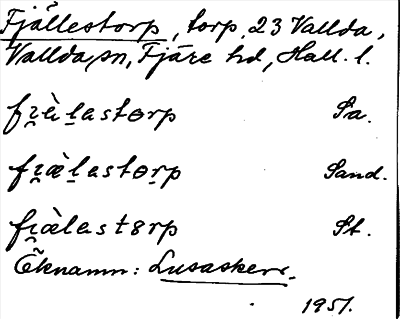 Fjällestorp, torp, 23 Vallda,
Vallda sn, Fjäre hd, Hall. l.
fi̯æ̀lastɵrp Sa.
fi̯æ̀lastɵrp Sand.
fi̯æ̀last8rp St.
Öknamn: Lusaskeri.
1951.